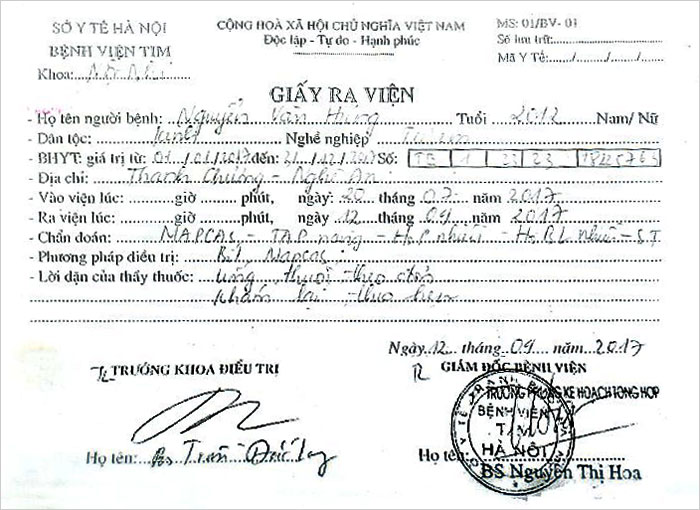 SỞ Y TẾ HÀ NỘI
BỆNH VIỆN TIM
Khoa: Nội Nhi
CỘNG HOÀ XÃ HỘI CHỦ NGHĨA VIỆT NAM
Độc lập - Tự do - Hạnh phúc
MS: 01/BV- 01
Số lưu trữ:
Mã Y Tế:......../......../......../........
GIẤY RA VIỆN
- Họ tên người bệnh: Nguyễn Văn Hùng Tuổi 2012 Nam/ Nữ
- Dân tộc: Kinh Nghề nghiệp
- BHYT: giá trị từ: 01/01/2017 đến: 31/12/2017 Số: TE 1
- Địa chỉ: Thanh Chương - Nghệ An
- Vào viện lúc:..........giờ..........phút, ngày: 20 tháng 07 năm 2017
- Ra viện lúc:..........giờ..........phút, ngày 12 tháng 09 năm 2017
- Chẩn đoán: MAPCAS - TAP nặng - HoP nhiều - HoBL nhiều - ST
- Phương pháp điều trị: Bít Mapcas
- Lời dặn của thầy thuốc: Uống thuốc theo đơn
Khám lại theo hẹn
Ngày 12 tháng 09 năm 2017
TL TRƯỞNG KHOA ĐIỀU TRỊ
GIÁM ĐỐC BỆNH VIỆN
TRƯỞNG PHÒNG KẾ HOẠCH TỔNG HỢP
BỆNH VIỆN
TIM
HÀ NỘI
Họ tên: Bs Trần Đắc
Họ tên:
BS Nguyễn Thị Hoa